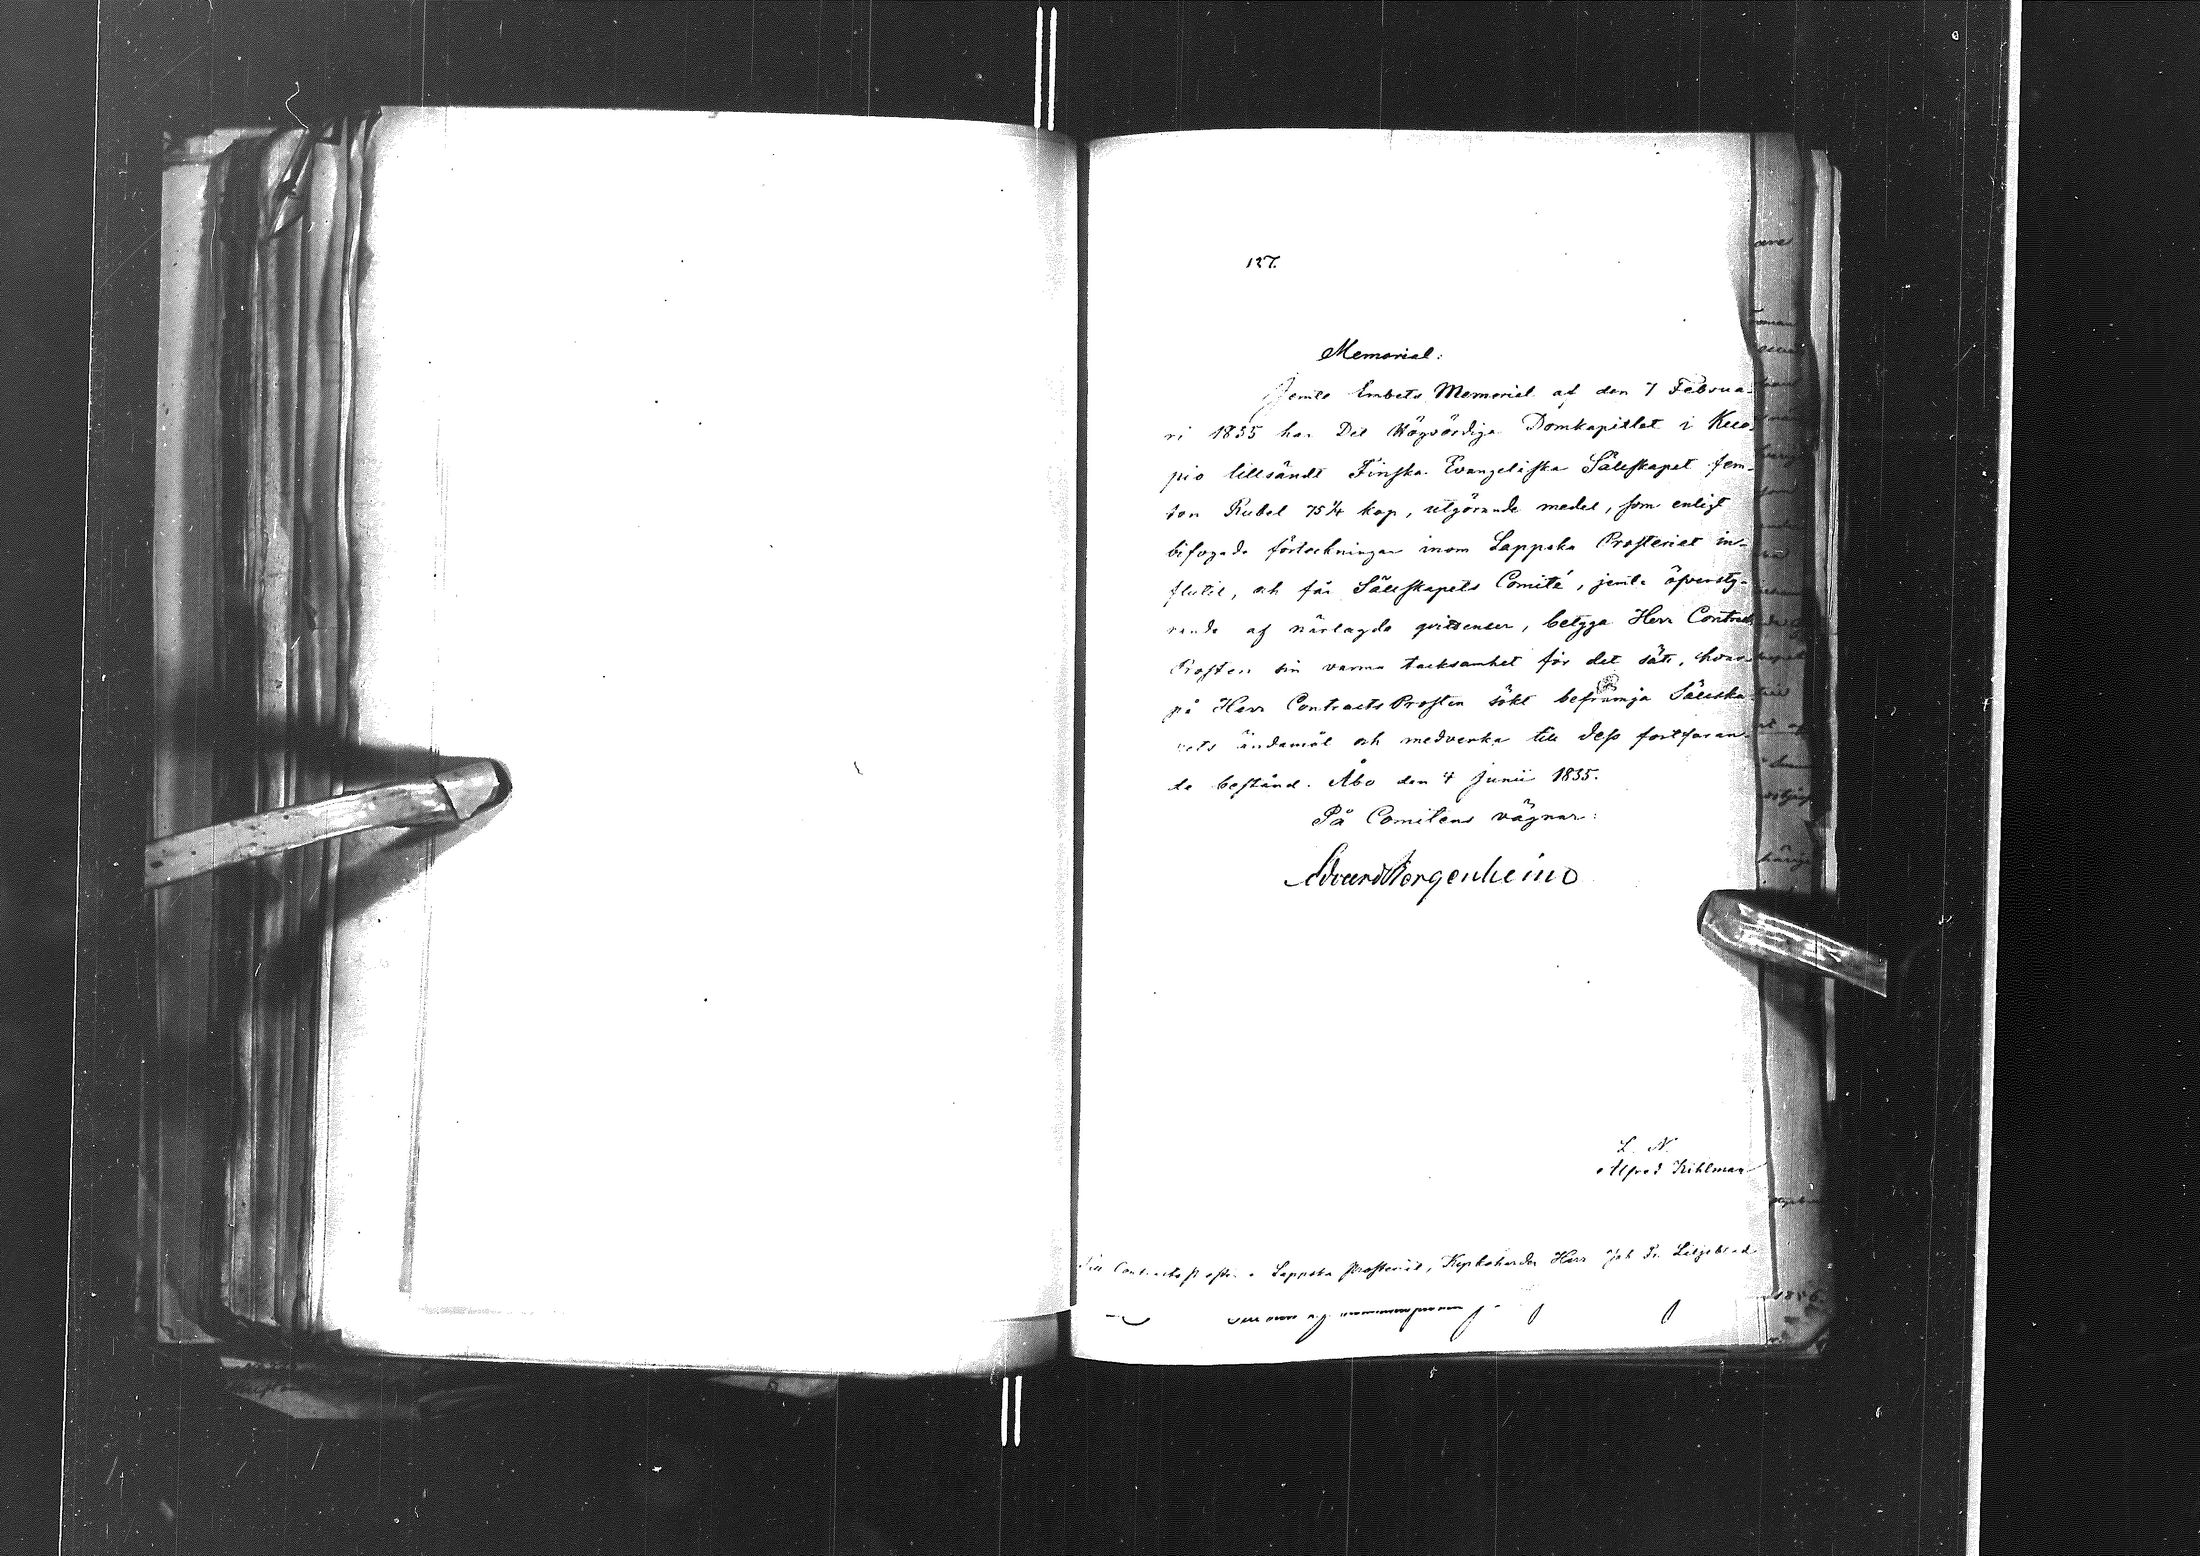 127.
Memorial:
Jemte Embets Memorial af den 7 Februa-
ri 1855 har Det Högvördiga Domkapitlet i Kuo-
pio tillsändt Finska Evangeliska Sällskapet fem-
ton Rubel 75 1/4 kop, utgörande medel, som enligt
bifogade förteckningar inom Lappska Prosteriet in-
flutit, och får Sällskapets Comité, jemte öfversty-
rande af närlagda qvittenser, betyga Herr Contracts
Prosten sin varma tacksamhet för det sätt, hvar-
på Herr Contracts Prosten sökt befrämja Sällska-
pets ändamål och medverka till dess fortfaran-
de bestånd. Åbo den 4 Junii 1855.
På Comiténs vägnar:
Edvard Bergenheim
L. N.
Alfred Kihlman
Till Contracts Prosten i Lappska Prosteriet, Kyrkoherden Herr Joh Fr. Liljeblad